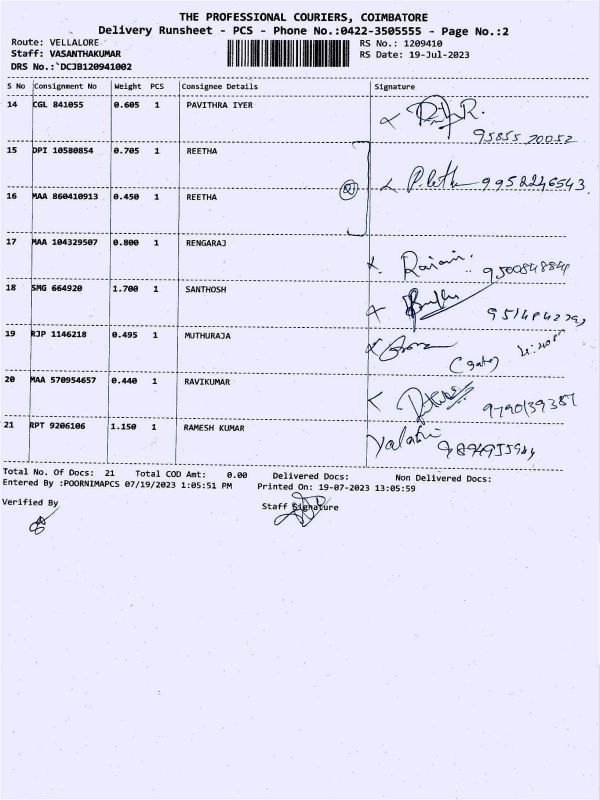 THE PROFESSIONAL COURIERS, COIMBATORE
Delivery Runsheet - PCS - Phone No.:0422-3505555 - Page No.:2
Route: VELLALORE RS No.: 1209410
Staff: VASANTHAKUMAR RS Date: 19-Jul-2023
DRS No.:`DCJB120941002
S No Consignment No Weight PCS Consignee Details Signature
14 CGL 841055 0.605 1 PAVITHRA IYER
95855 20052
15 DPI 10580854 0.705 1 REETHA
9952246543
16 MAA 860410913 0.450 1 REETHA
17 MAA 104329507 0.800 1 RENGARAJ
18 SMG 664920 1.700 1 SANTHOSH
19 RJP 1146218 0.495 1 MUTHURAJA
20 MAA 570954657 0.440 1 RAVIKUMAR
9790139387
21 RPT 9206106 1.150 1 RAMESH KUMAR
Total No. Of Docs: 21 Total COD Amt: 0.00 Delivered Docs: Non Delivered Docs:
Entered By :POORNIMAPCS 07/19/2023 1:05:51 PM Printed On: 19-07-2023 13:05:59
Verified By Staff Signature